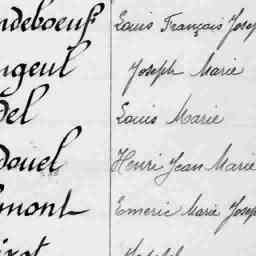 ndeboeuf Louis François Josep
ngeul Joseph Marie
del Louis Marie
Douël Henri Jean Marie
mont Emeric Marie Josep